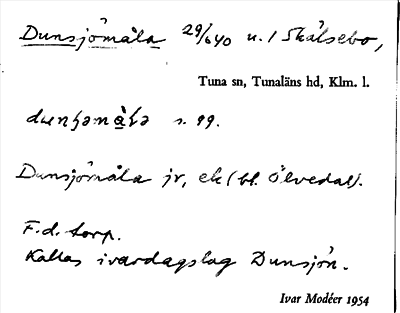 Dunsjömåla 29/640 u. / Skälsebo,
Tuna sn, Tunaläns hd, Klm. l.
s. 99.
Dunsjömåla jr, ek (bl. Ölvedal).
F.d. torp.
Kallas i vardagslag Dunsjön.
Ivar Modéer 1954